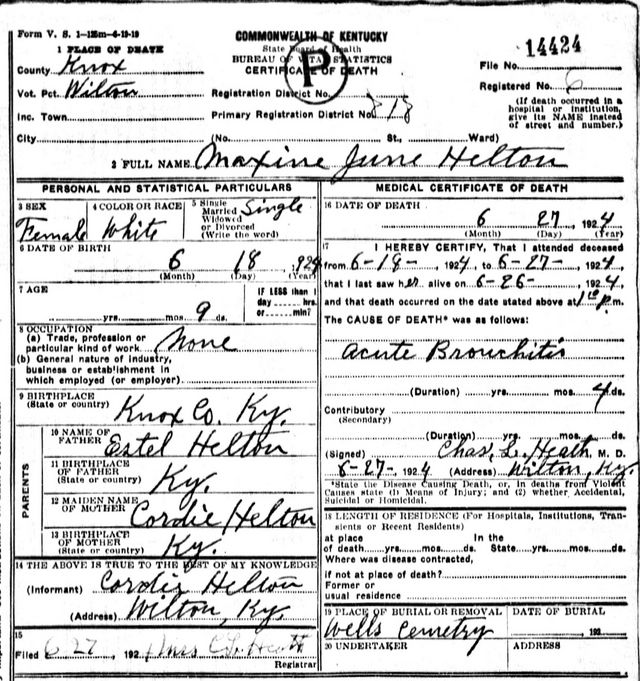 Form V. S. 1-125m-4-19-19
COMMONWEALTH OF KENTUCKY
State Board of Health
BUREAU OF VITAL STATISTICS
CERTIFICATE OF DEATH
P
14424
File No.
Registered No. 6
(If death occurred in a hospital or institution, give its NAME instead of street and number.)
1 PLACE OF DEATH
County Knox
Vot. Pct. Wilton
Registration District No.
Inc. Town
Primary Registration District No. 818
City (No. St., Ward)
2 FULL NAME Maxine June Helton
PERSONAL AND STATISTICAL PARTICULARS
3 SEX Female
4 COLOR OR RACE White
5 Single Married Widowed or Divorced (Write the word) Single
6 DATE OF BIRTH
6 18 924
(Month) (Day) (Year)
7 AGE
yrs. mos. 9 ds.
IF LESS than 1 day hrs. or min?
8 OCCUPATION
(a) Trade, profession or particular kind of work None
(b) General nature of industry, business or establishment in which employed (or employer)
9 BIRTHPLACE
(State or country) Knox Co. Ky.
PARENTS
10 NAME OF FATHER Estel Helton
11 BIRTHPLACE OF FATHER (State or country) Ky.
12 MAIDEN NAME OF MOTHER Cordie Helton
13 BIRTHPLACE OF MOTHER (State or country) Ky.
14 THE ABOVE IS TRUE TO THE BEST OF MY KNOWLEDGE
(Informant) Cordie Helton
(Address) Wilton, Ky.
15
Filed 6 27, 192 Mrs C. L. Heath
Registrar
MEDICAL CERTIFICATE OF DEATH
16 DATE OF DEATH
6 27, 1924
(Month) (Day) (Year)
17 I HEREBY CERTIFY, That I attended deceased
from 6-18-, 1924, to 6-27-, 1924,
that I last saw her alive on 6-26-, 1924,
and that death occurred on the date stated above at 1 p m.
The CAUSE OF DEATH* was as follows:
Acute Bronchitis
(Duration) yrs. mos. 4 ds.
Contributory
(Secondary)
(Duration) yrs. mos. ds.
(Signed) Chas. L. Heath, M. D.
6-27-, 1924 (Address) Wilton, Ky.
*State the Disease Causing Death, or, in deaths from Violent
Causes state (1) Means of Injury; and (2) whether Accidental,
Suicidal or Homicidal.
18 LENGTH OF RESIDENCE (For Hospitals, Institutions, Tran-
sients or Recent Residents)
at place of death yrs. mos. ds. In the State yrs. mos. ds.
Where was disease contracted,
if not at place of death?
Former or
usual residence
19 PLACE OF BURIAL OR REMOVAL
Wells Cemetry
DATE OF BURIAL
, 192
20 UNDERTAKER
ADDRESS